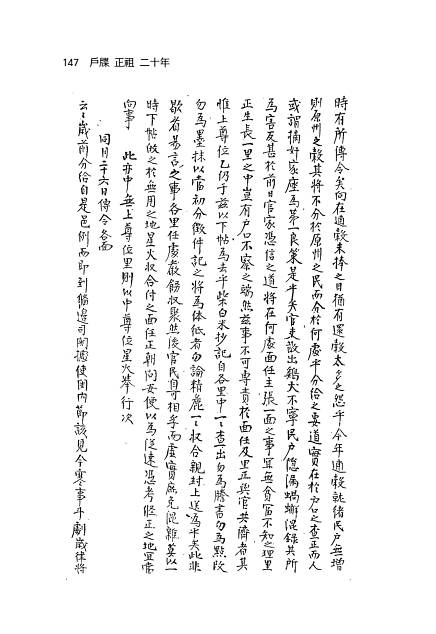 147 戶牒 正祖 二十年
時有所傳令矣向在逋穀未捧之日猶有還穀太多之怨乎今年逋穀就緖民戶無增
則原州之穀其將不分於原州之民而分於何處乎分給之要道實在於戶口之查正而人
或謂摘奸家座爲第一良策是乎矣官吏散出鷄犬不寧民戶隱漏蝸螂混錄其所
爲害反甚於前日官家憑信之道將在何處面任主張一面之事冥無貧富不知之理里
正生長一里之中豈有戶口不察之端然茲事不可專責於面任及里正與官共濟者其
惟上尊位乙仍于茲以下帖爲去乎柴白米抄記自各里中一一查出勿爲謄書勿爲點改
勿爲墨抹以當初分徵件記之將爲体低者勿論精麁一一收合親封上送爲乎矣此非
歇看易言之事各里任處嚴飭收聚然後官民自可相孚而虛實庶免混雜莫以一
時下帖倣之於無用之地星火收合付之面任正朝問安便以爲從速憑考釐正之地宜當
向事 此亦中無上尊位里則以中尊位星火擧行次
同月二十六日傳令各面
云云歲前分給自是邑例而卽到備邊司關據使關內節該見今寒事斗劇歲律將